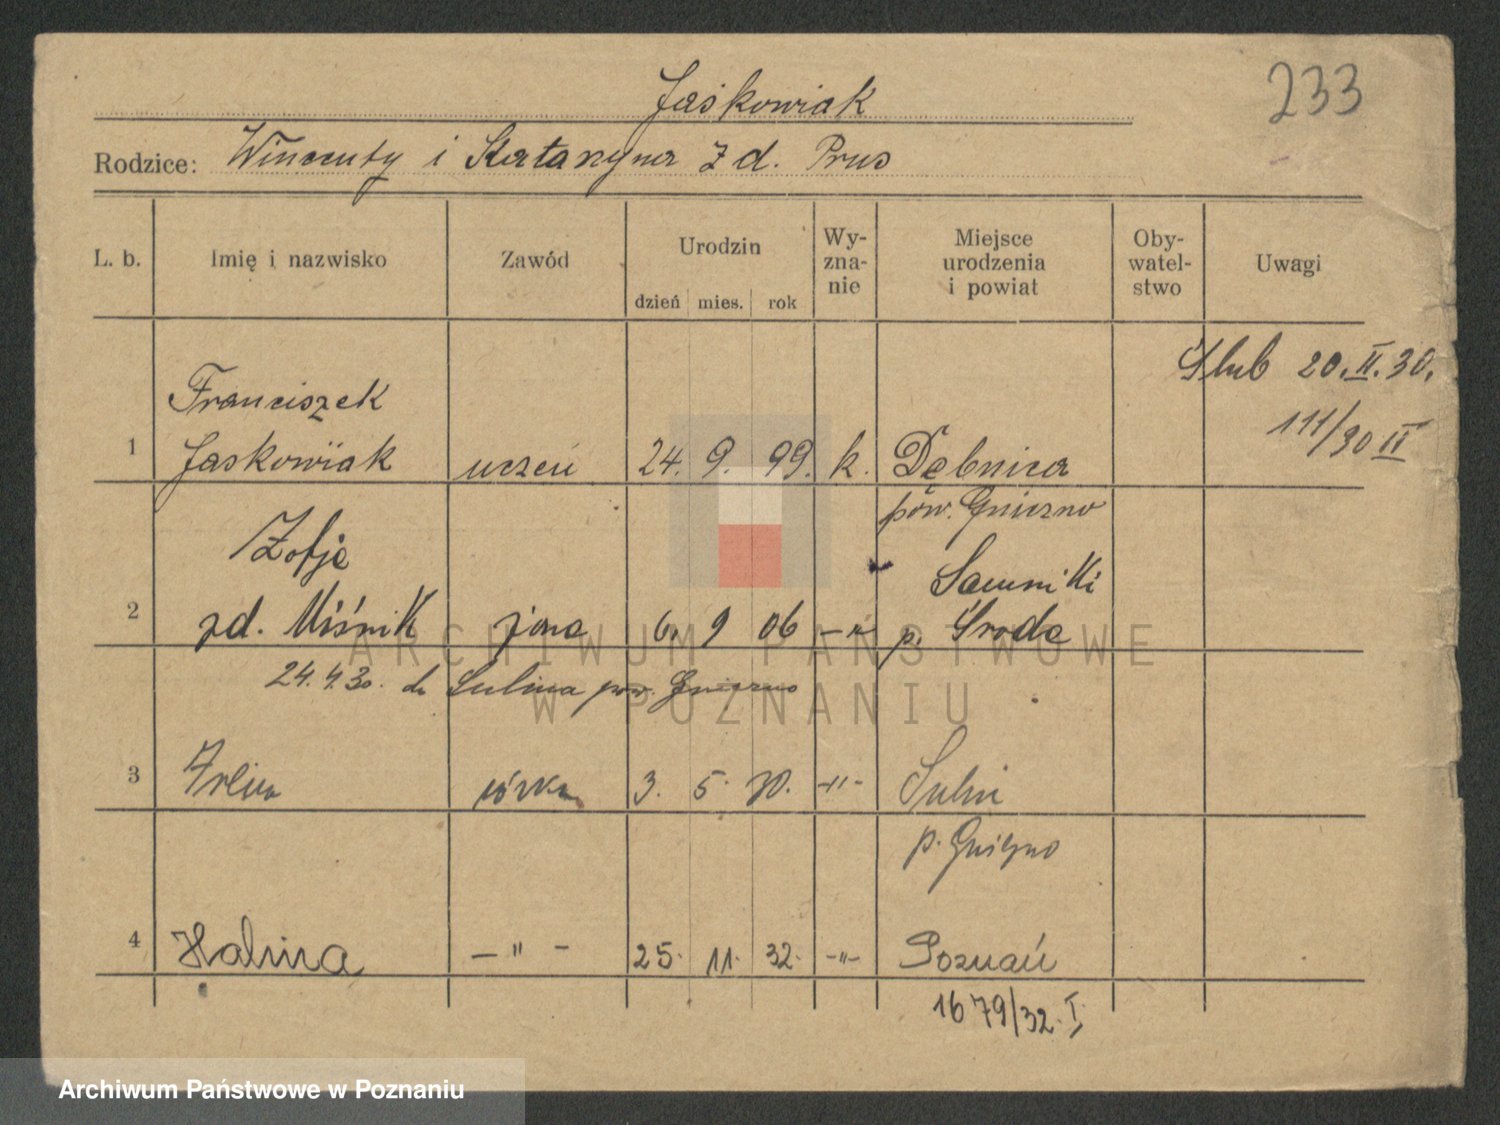 233
Jaśkowiak
Rodzice: Wincenty i Katarzyna z d. Prus
L. b. Imię i nazwisko Zawód Urodzin dzień mies. rok Wy-zna-nie Miejsce urodzenia i powiat Oby-watel-stwo Uwagi
Ślub 20.II.30.
111/30 II
Franciszek
1 Jaskowiak uczeń 24. 9. 99. k. Dębnica
pow. Gniezno
Zofja Sanniki
2 zd. Miśnik żona 6. 9 06 -"- p. Środa
24.4.30. do Sulina pow. Gniezno
3 Irena córka 3. 5. 30. -"- Sulin
p. Gniezno
4 Halina - " - 25. 11. 32. -"- Poznań
1679/32. I
ARCHIWUM PAŃSTWOWE
W POZNANIU
Archiwum Państwowe w Poznaniu